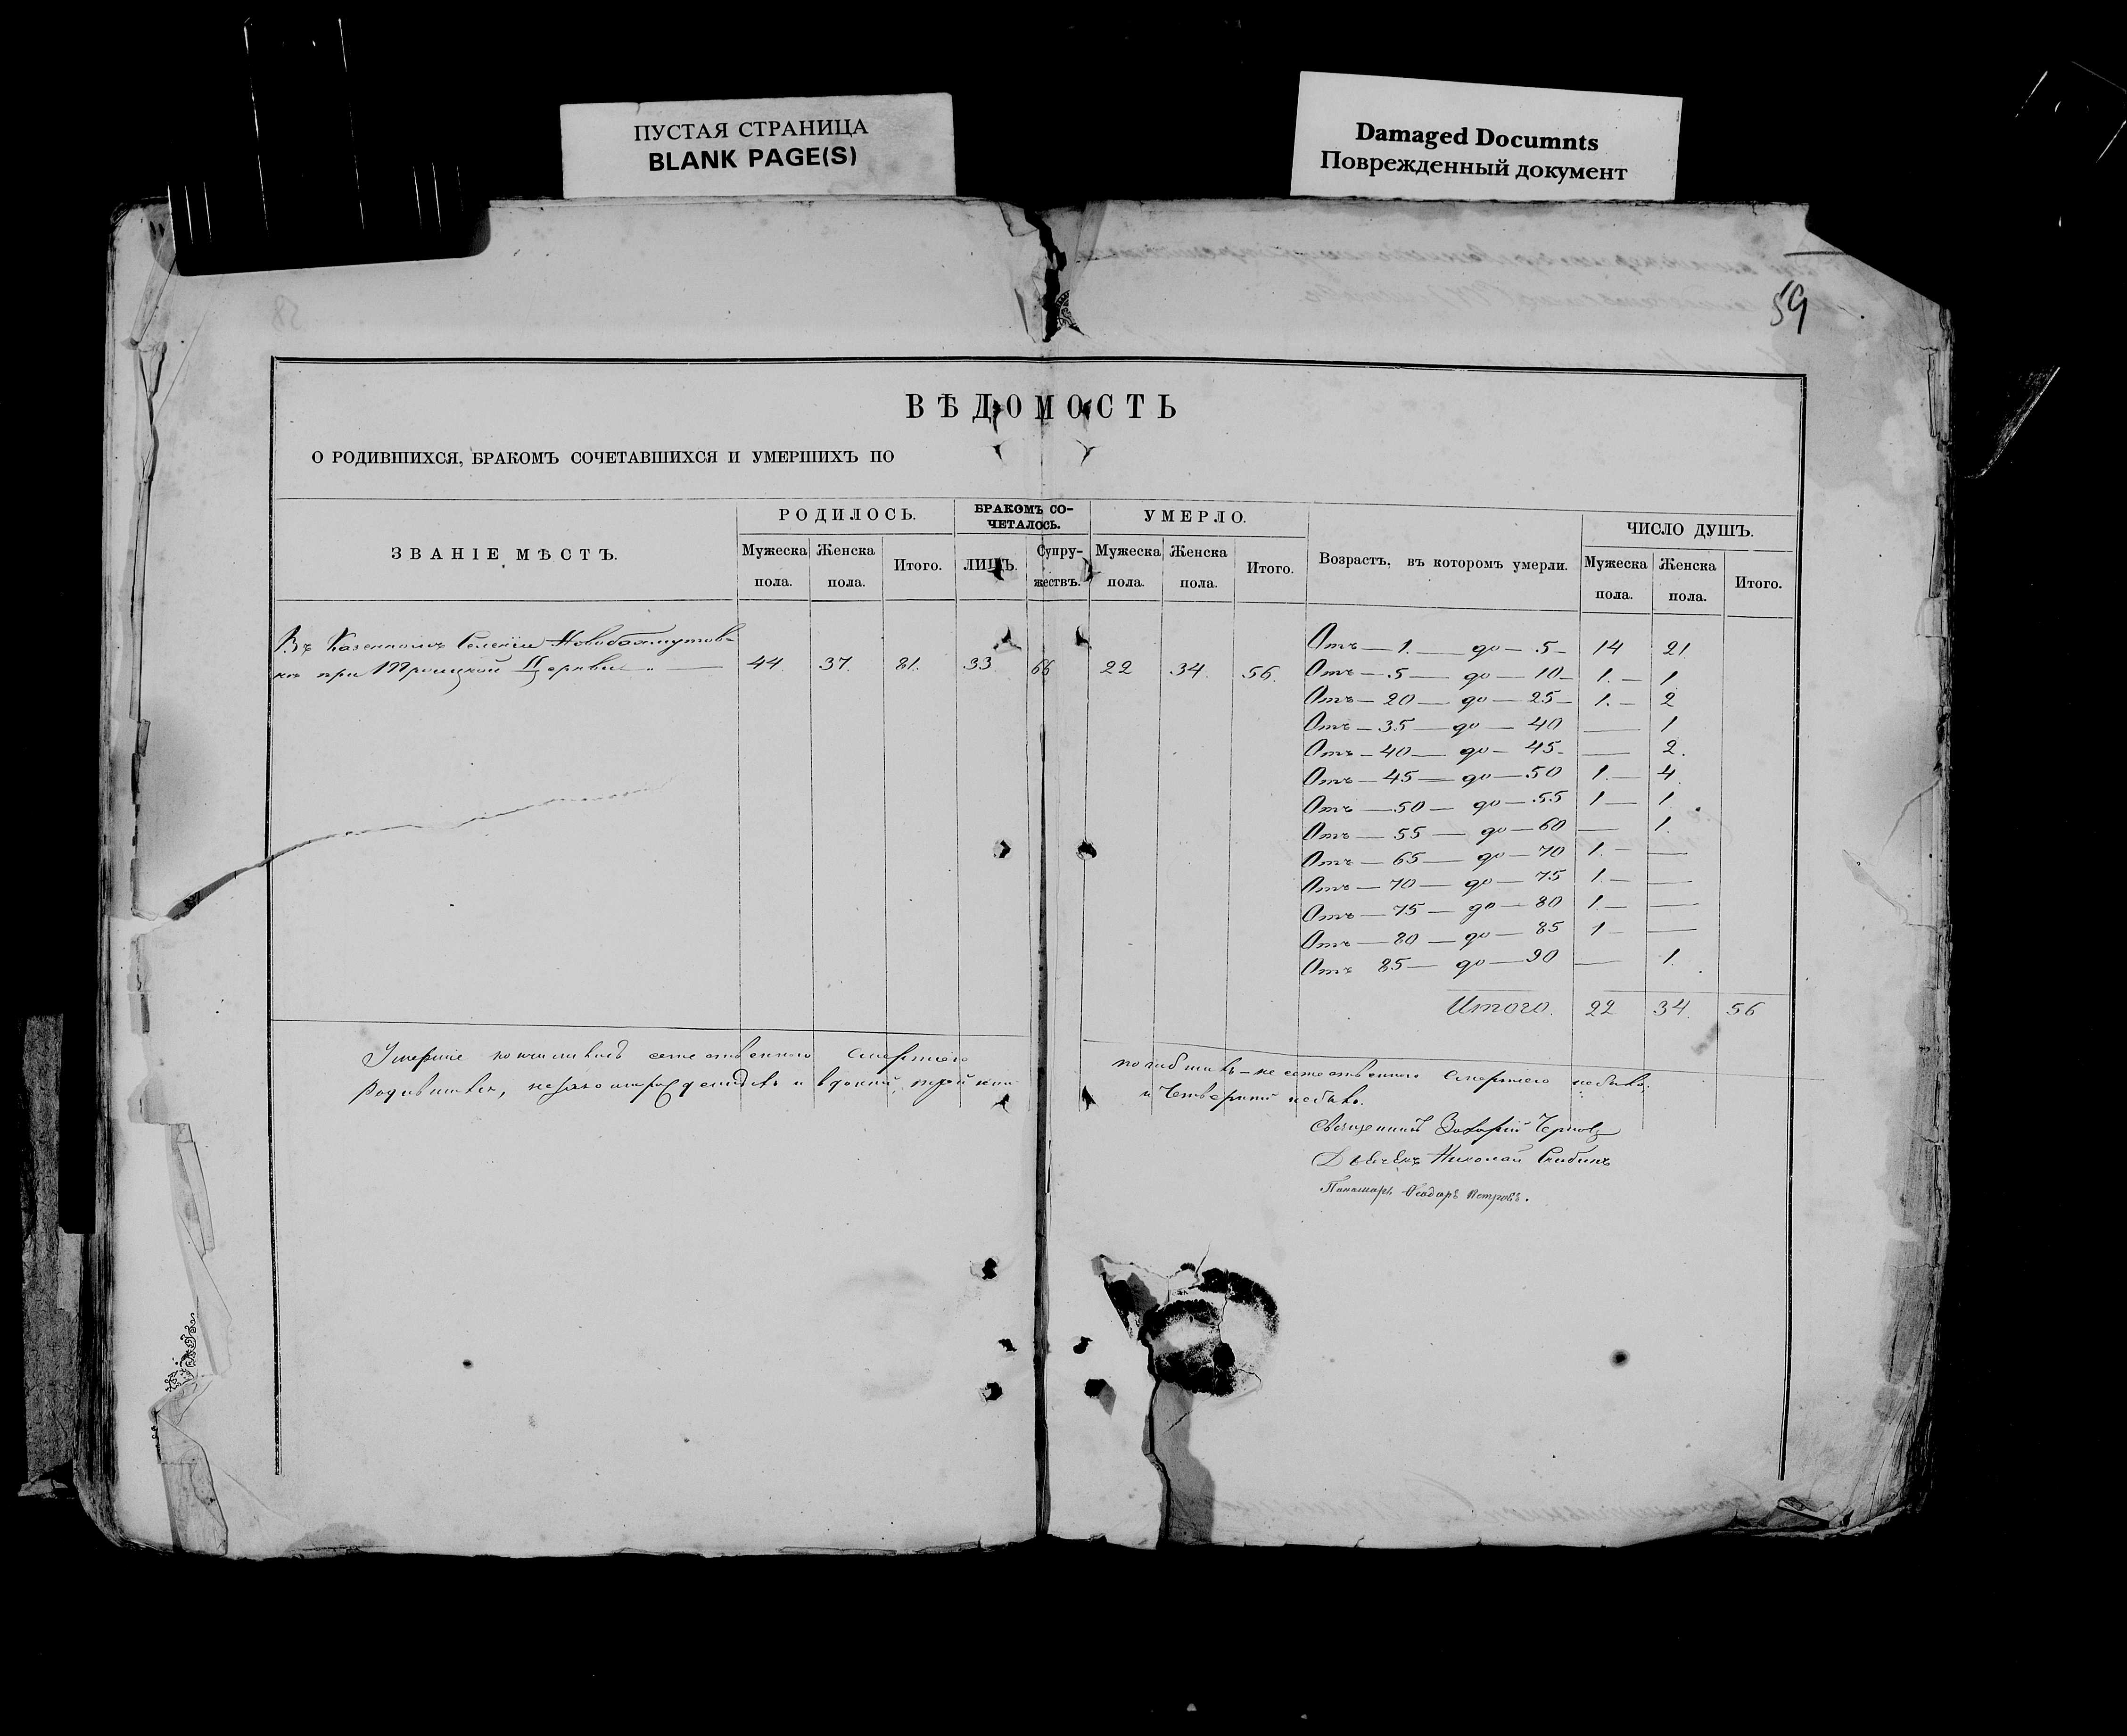 ПУСТАЯ СТРАНИЦА
BLANK PAGE(S)
Damaged Documnts
Поврежденный документ
59
ВѢДОМОСТЬ
О РОДИВШИХСЯ, БРАКОМЪ СОЧЕТАВШИХСЯ И УМЕРШИХЪ ПО
ЗВАНІЕ МѢСТЪ. РОДИЛОСЬ. БРАКОМЪ СО-ЧЕТАЛОСЬ. УМЕРЛО. Возрастъ, въ которомъ умерли. ЧИСЛО ДУШЪ.
Мужеска пола. Женска пола. Итого. ЛИЦЪ. Супру-жествъ. Мужеска пола. Женска пола. Итого. Мужеска пола. Женска пола. Итого.
Въ Казенномъ Селеніи Новобахмутов-
кѣ при Троицкой Церкви „ — 44. 37. 81. 33. 66 22 34. 56.
Отъ — 1. — до — 5 — 14 21
Отъ — 5 — до — 10 — 1. — 1.
Отъ — 20 — до — 25 — 1. — 2
Отъ — 35 — до — 40 — 1
Отъ — 40 — до — 45 — — 2.
Отъ — 45 — до — 50 1. — 4.
Отъ — 50 — до — 55 1 — 1.
Отъ — 55 — до — 60 — 1.
Отъ — 65 — до — 70 1. — —
Отъ — 70 — до — 75 1. — —
Отъ — 75 — до — 80 1. — —
Отъ — 80 — до — 85 1 — —
Отъ 85 — до — 90 — 1.
Итого. 22 34. 56
Умершіе кончились естественною смертію погибшихъ не естественною смертію небыло;
Родившихся, незаконнорожденныхъ и двойни, тройни и четверни небыло.
Священникъ Захарій Чернов
Дьячекъ Николай Скибинъ
Панамарь Феодоръ Петровъ.